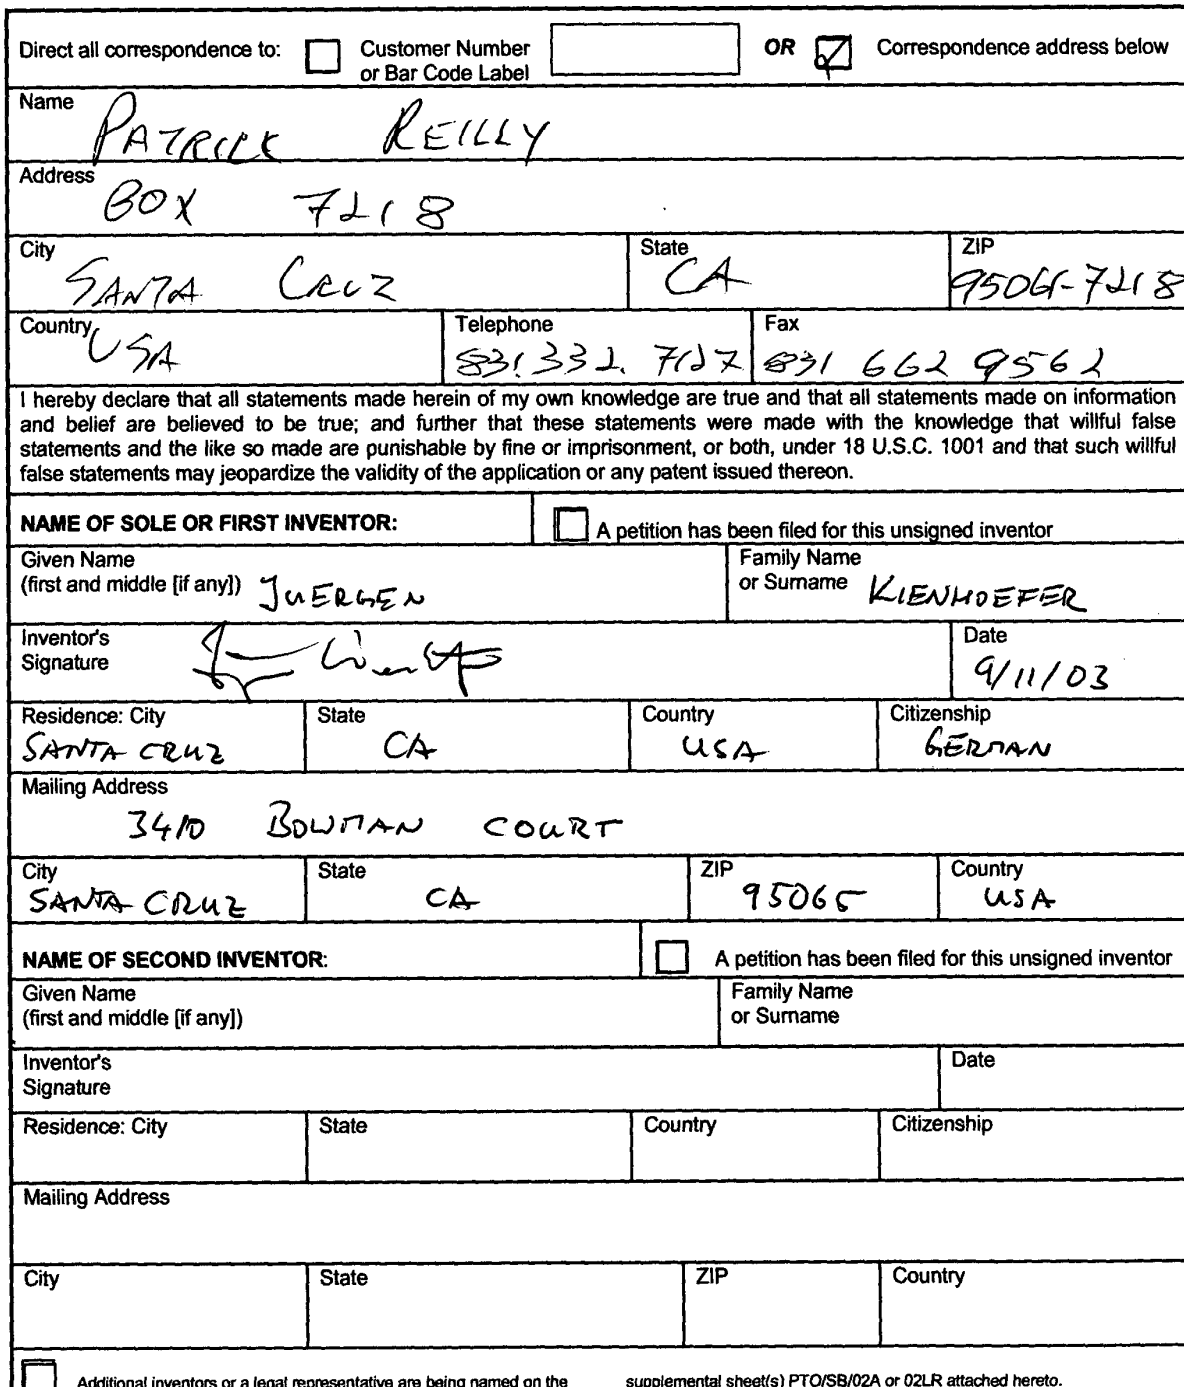 Direct all correspondence to: Customer Number or Bar Code Label OR Correspondence address below
Name
PATRICK REILLY
Address
BOX 7218
City State ZIP
SANTA CRUZ CA 95061-7218
Country Telephone Fax
USA 831.332.7127 831 662 9562
I hereby declare that all statements made herein of my own knowledge are true and that all statements made on information
and belief are believed to be true; and further that these statements were made with the knowledge that willful false
statements and the like so made are punishable by fine or imprisonment, or both, under 18 U.S.C. 1001 and that such willful
false statements may jeopardize the validity of the application or any patent issued thereon.
NAME OF SOLE OR FIRST INVENTOR: A petition has been filed for this unsigned inventor
Given Name Family Name
(first and middle [if any]) JUERGEN or Surname KIENHOEFER
Inventor's Date
Signature 9/11/03
Residence: City State Country Citizenship
SANTA CRUZ CA USA GERMAN
Mailing Address
3410 BOWMAN COURT
City State ZIP Country
SANTA CRUZ CA 95065 USA
NAME OF SECOND INVENTOR: A petition has been filed for this unsigned inventor
Given Name Family Name
(first and middle [if any]) or Surname
Inventor's Date
Signature
Residence: City State Country Citizenship
Mailing Address
City State ZIP Country
Additional inventors or a legal representative are being named on the supplemental sheet(s) PTO/SB/02A or 02LR attached hereto.